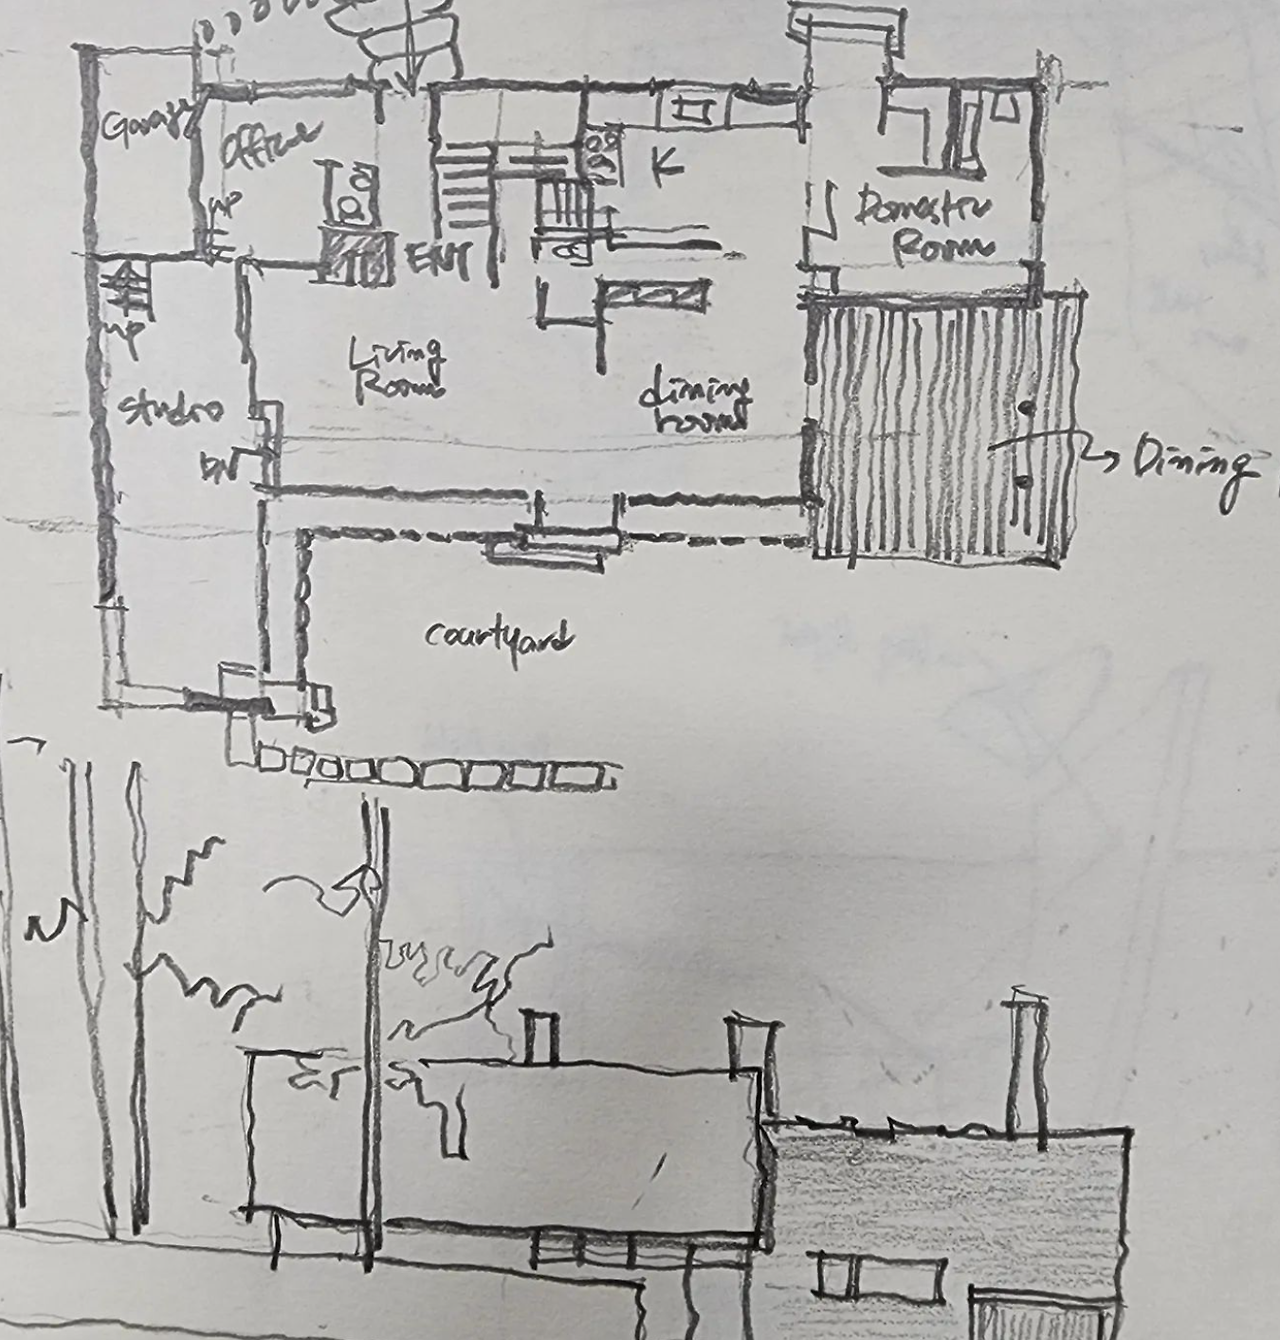 Garage
Office
K
UP
ENT
Domestic
Room
UP
Living
Room
dining
room
studio
DN
Dining
courtyard